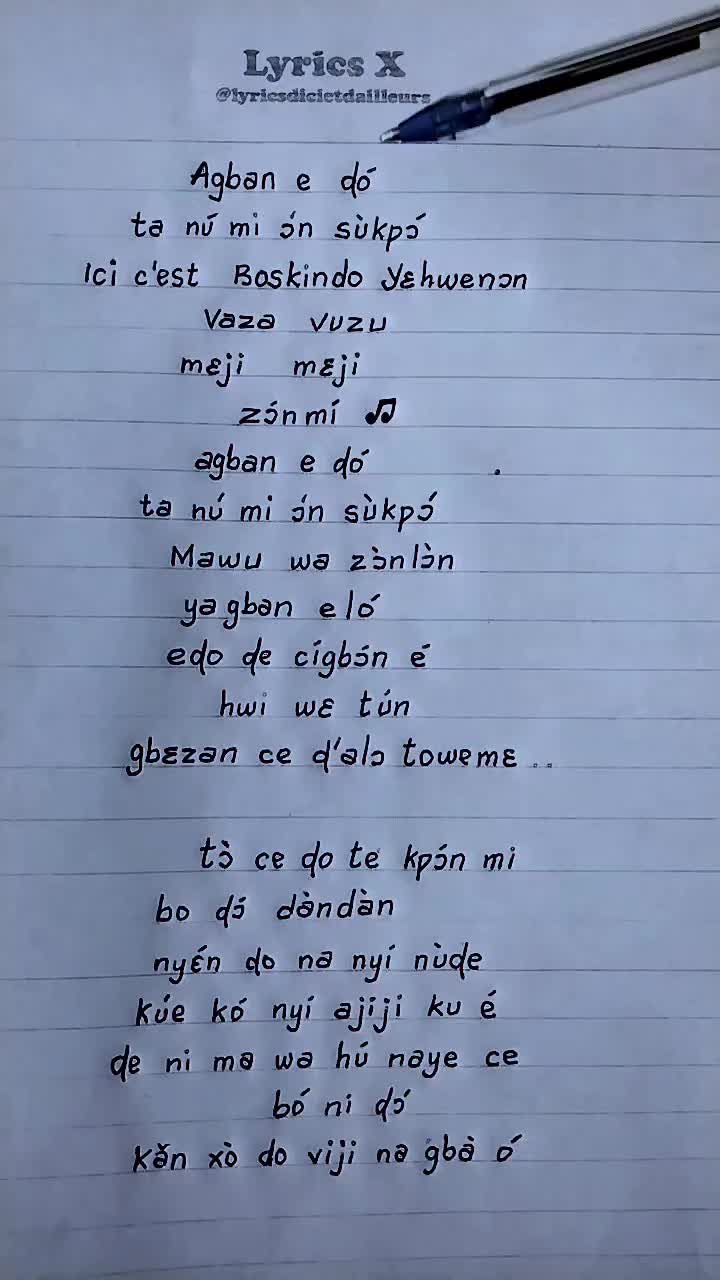 Lyrics X
@lyricsdicietdailleurs
Agban e ɖó
ta nú mi ɔ́n sùkpɔ́
Ici c'est Boskindo Yɛhwenɔn
Vaza vuzu
mɛji mɛji
zɔ́nmí ♫
agban e ɖó
ta nú mi ɔ́n sùkpɔ́
Mawu wa zɔ̀nlɔ̀n
ya gban eló
edo ɖe cígbɔ́n é
hwi wɛ tún
gbɛzan ce ɖ'alɔ towemɛ ..
tɔ̀ ce ɖo te kpɔ́n mi
bo ɖɔ́ dàndàn
nyɛ́n ɖo na nyí nùɖe
kúe kó nyí ajiji ku é
ɖe ni ma wa hú naye ce
bó ni ɖɔ́
kǎn xò do viji na gbà ó